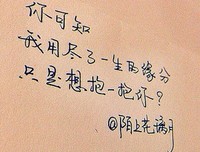 你可知
我用尽了一生的缘分
只是想抱一抱你？
@陌上花漓月